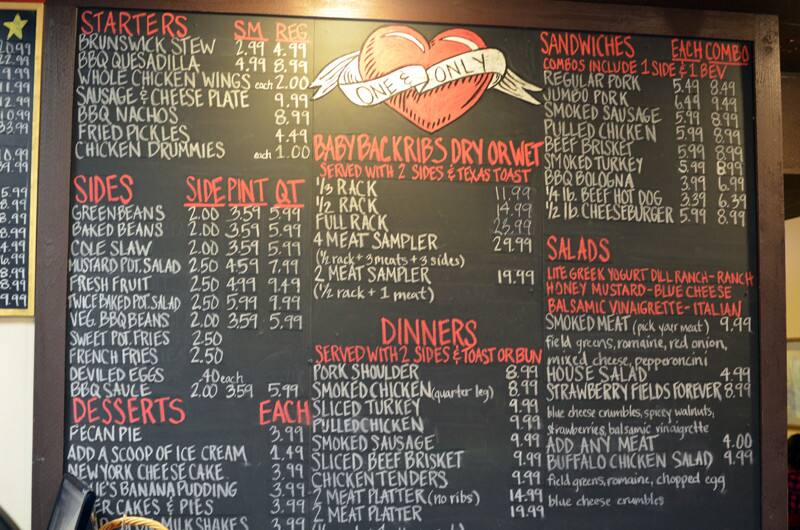 STARTERS SM REG
BRUNSWICK STEW 2.99 4.99
BBQ QUESADILLA 4.99 8.99
WHOLE CHICKEN WINGS each 2.00
SAUSAGE & CHEESE PLATE 9.99
BBQ NACHOS 8.99
FRIED PICKLES 4.49
CHICKEN DRUMMIES each 1.00
SIDES SIDE PINT QT
GREEN BEANS 2.00 3.59 5.99
BAKED BEANS 2.00 3.59 5.99
COLE SLAW 2.00 3.59 5.99
MUSTARD POT. SALAD 2.50 4.59 7.99
FRESH FRUIT 2.50 4.99 9.49
TWICE BAKED POT. SALAD 2.50 5.99 9.99
VEG. BBQ BEANS 2.00 3.59 5.99
SWEET POT. FRIES 2.50
FRENCH FRIES 2.50
DEVILED EGGS .40 each
BBQ SAUCE 2.00 3.59 5.99
DESSERTS EACH
PECAN PIE 3.99
ADD A SCOOP OF ICE CREAM 1.49
NEW YORK CHEESE CAKE 3.99
BANANA PUDDING 3.99
CAKES & PIES 3.99
MILKSHAKES 3.99
ONE & ONLY
BABY BACK RIBS DRY OR WET
SERVED WITH 2 SIDES & TEXAS TOAST
1/3 RACK 11.99
1/2 RACK 14.99
FULL RACK 23.99
4 MEAT SAMPLER 29.99
(1/2 rack + 3 meats + 3 sides)
2 MEAT SAMPLER 19.99
(1/2 rack + 1 meat)
DINNERS
SERVED WITH 2 SIDES & TOAST OR BUN
PORK SHOULDER 8.99
SMOKED CHICKEN (quarter leg) 8.99
SLICED TURKEY 9.99
PULLED CHICKEN 9.99
SMOKED SAUSAGE 9.99
SLICED BEEF BRISKET 9.99
CHICKEN TENDERS 9.99
2 MEAT PLATTER (no ribs) 14.99
MEAT PLATTER 19.99
SANDWICHES EACH COMBO
COMBOS INCLUDE 1 SIDE & 1 BEV
REGULAR PORK 5.49 8.49
JUMBO PORK 6.49 9.49
SMOKED SAUSAGE 5.99 8.99
PULLED CHICKEN 5.99 8.99
BEEF BRISKET 5.99 8.99
SMOKED TURKEY 5.99 8.99
BBQ BOLOGNA 3.99 6.99
1/4 lb. BEEF HOT DOG 3.39 6.39
1/2 lb. CHEESEBURGER 5.99 8.99
SALADS
LITE GREEK YOGURT DILL RANCH - RANCH
HONEY MUSTARD - BLUE CHEESE
BALSAMIC VINAIGRETTE - ITALIAN
SMOKED MEAT (pick your meat) 9.99
field greens, romaine, red onion,
mixed cheese, pepperoncini
HOUSE SALAD 4.99
STRAWBERRY FIELDS FOREVER 8.99
blue cheese crumbles, spicey walnuts,
strawberries, balsamic vinaigrette
ADD ANY MEAT 4.00
BUFFALO CHICKEN SALAD 9.99
field greens, romaine, chopped egg
blue cheese crumbles